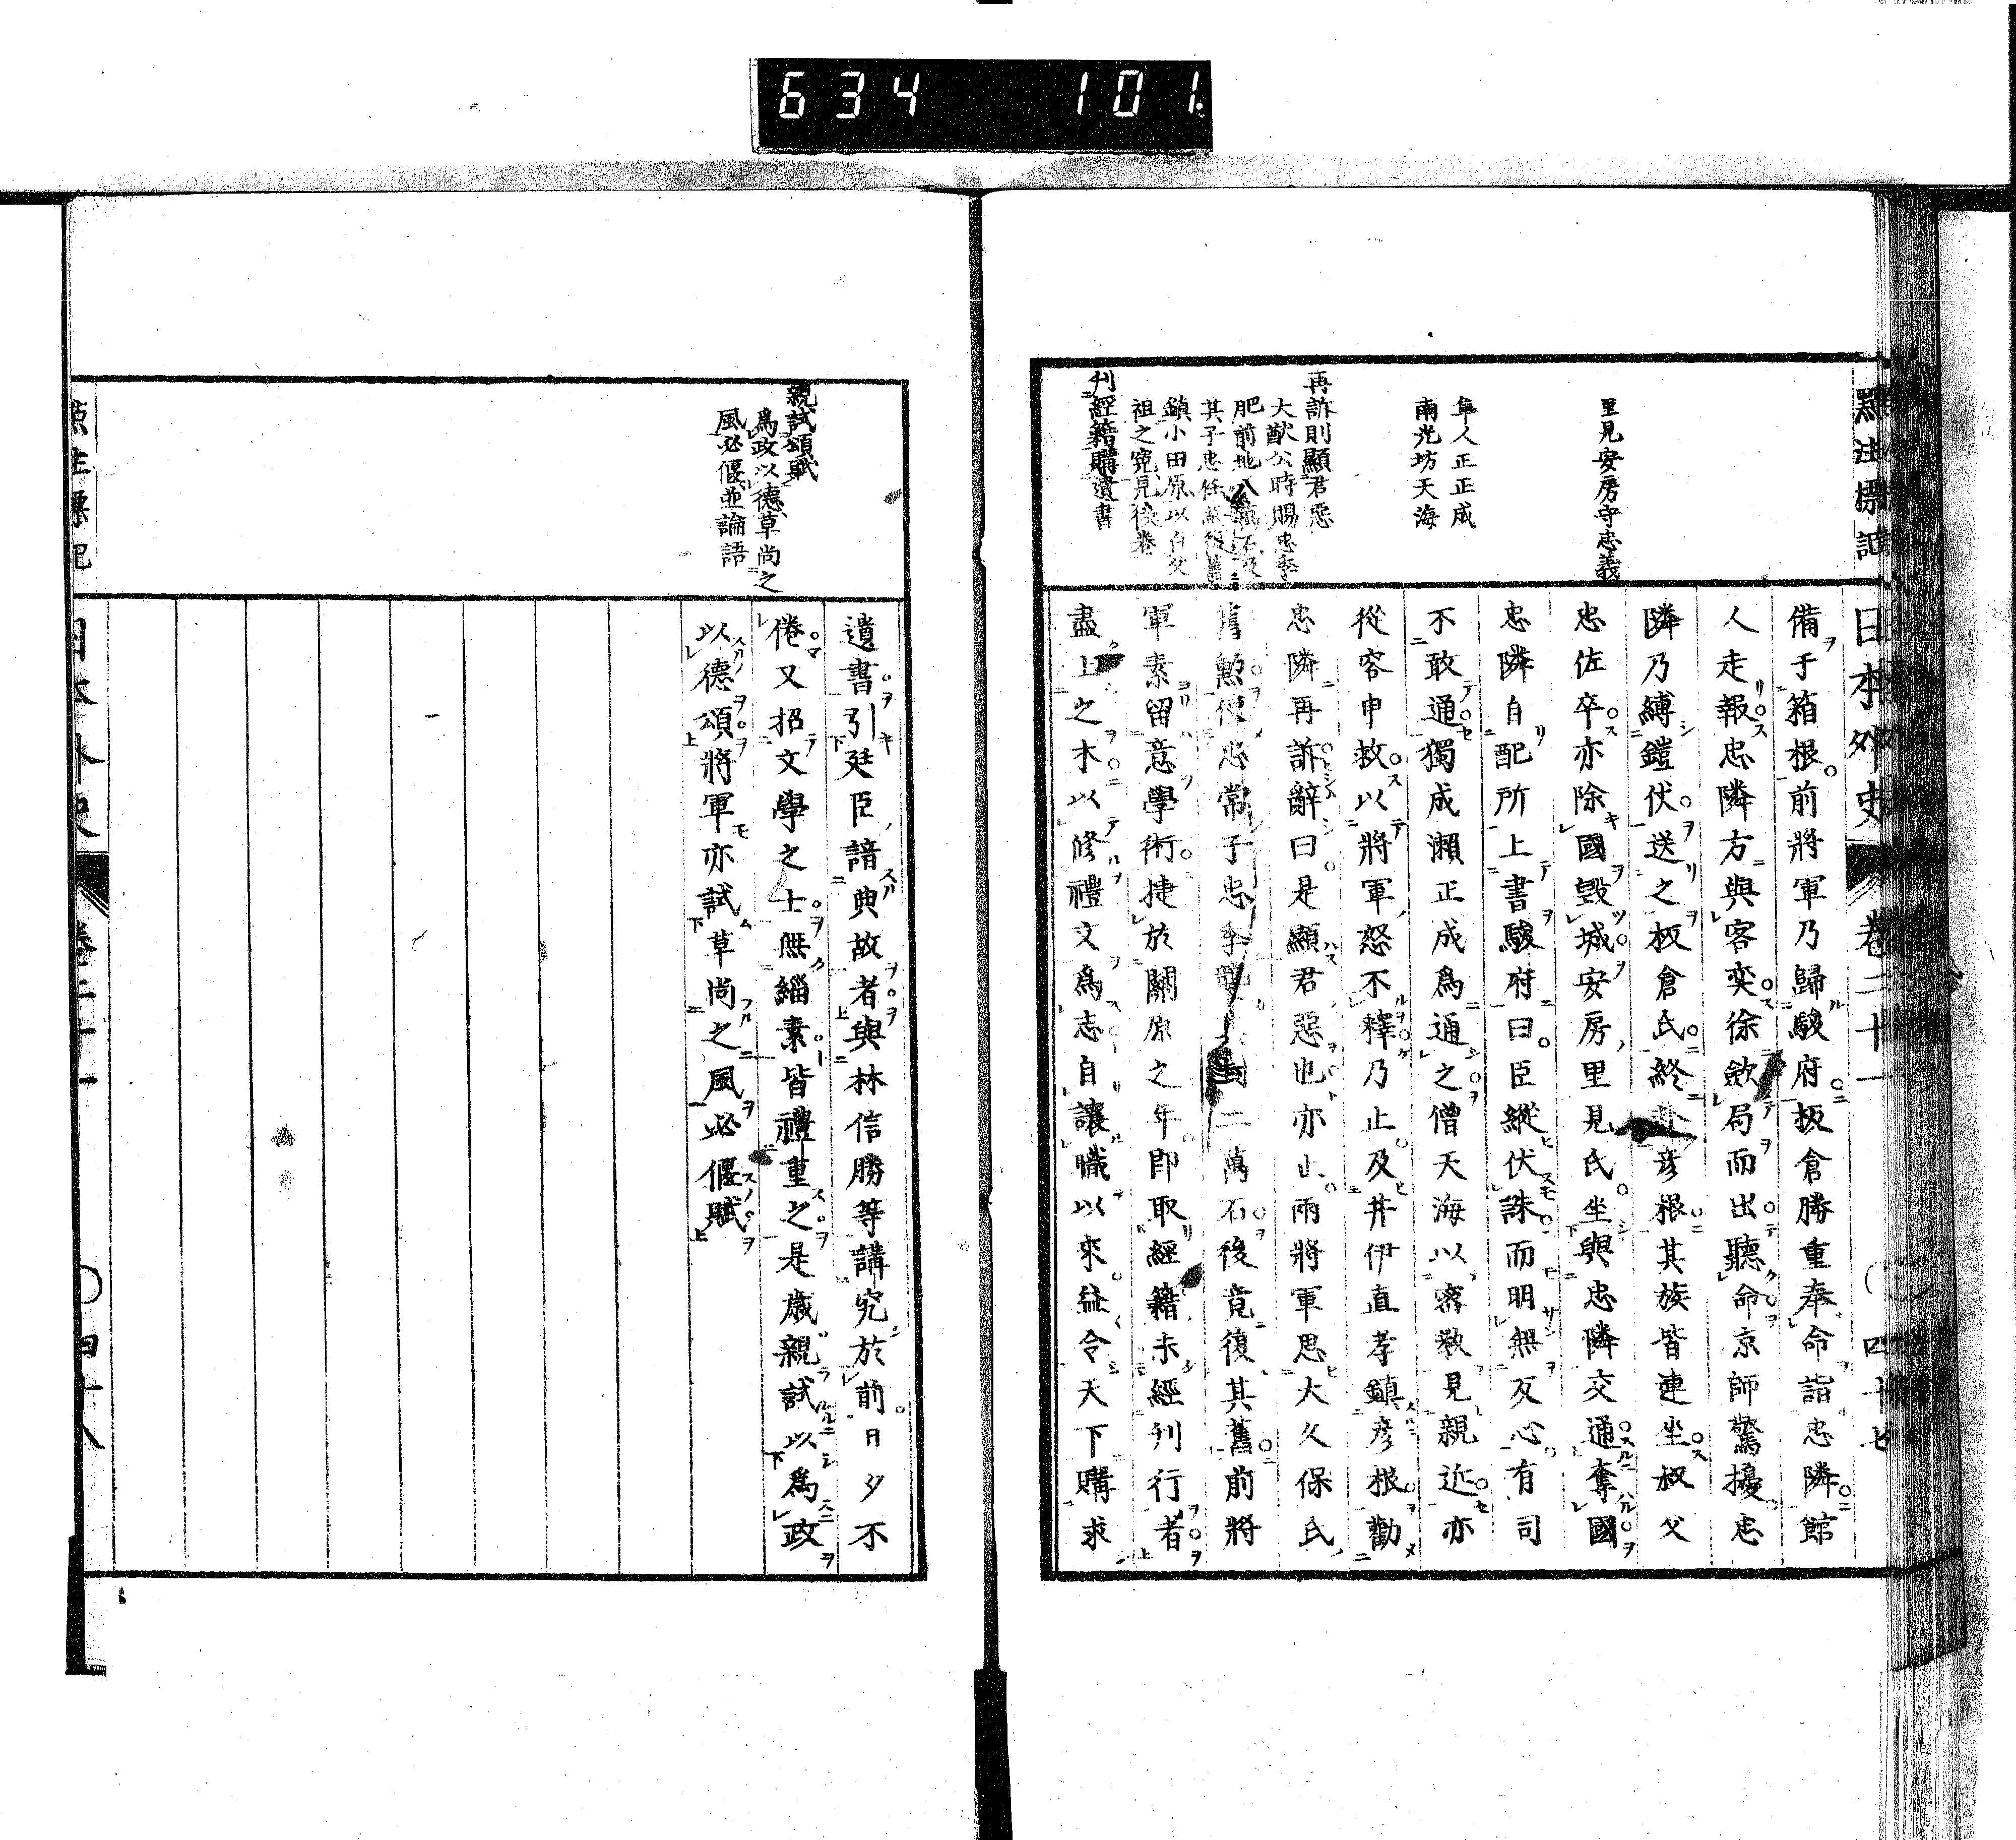 634 101
點註標記
日本外史 卷二十一 四十七
里見安房守忠義
隼人正正成
南光坊天海
再訴則顯君惡
大猷公時賜忠季
肥前地八
其子忠任
鎮小田原以白父
祖之冤見後卷
刊經籍購遺書
備于箱根前將軍乃歸駿府板倉勝重奉命詣忠隣館
人走報忠隣方與客奕徐斂局而出聽命京師驚擾忠
隣乃縛鎧伏送之板倉氏終赴彦根其族皆連坐叔父
忠佐卒亦除國毀城安房里見氏坐與忠隣交通奪國
忠隣自配所上書駿府曰臣縱伏誅而明無反心有司
不敢通獨成瀬正成爲通之僧天海以密教見親近亦
從容申救以將軍怒不釋乃止及井伊直孝鎮彦根勸
忠隣再訴辭曰是顯君惡也亦止兩將軍思大久保氏
舊勲使忠常子忠季 二萬石後竟復其舊前將
軍素留意學術捷於關原之年即取經籍未經刊行者
盡上之木以修禮文爲志自讓職以來益令天下購求
親試頌賦
爲政以德草尚之
風必偃並論語
遺書引廷臣諳典故者與林信勝等講究於前日夕不
倦又招文學之士無緇素皆禮重之是歲親試以爲政
以德頌將軍亦試草尚之風必偃賦
點註標記
日本外史 卷二十一 四十八